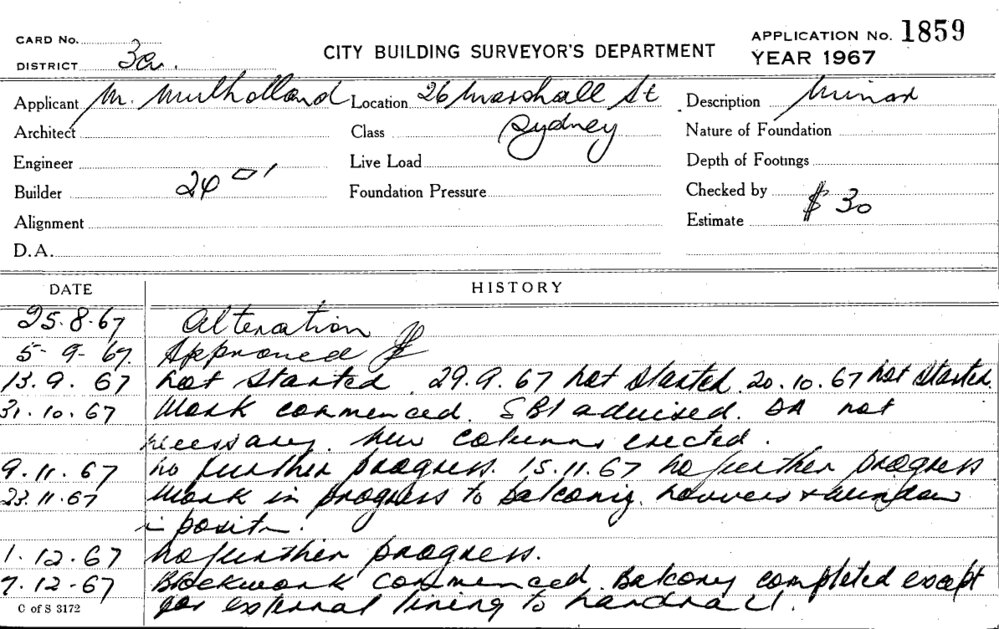 CARD No.
DISTRICT 3a.
CITY BUILDING SURVEYOR'S DEPARTMENT
APPLICATION No. 1859
YEAR 1967
Applicant M. Mulholland Location 26 Marshall St Description Minor
Architect Class Sydney Nature of Foundation
Engineer Live Load Depth of Footings
Builder Foundation Pressure Checked by
Alignment Estimate $30
D.A.
DATE HISTORY
25.8.67 Alteration
5-9-67. Approved
13.9.67 Not started 29.9.67 Not started. 20.10.67 Not started.
31.10.67 Work commenced. SBI advised. DA not
necessary. New columns erected.
9.11.67 No further progress. 15.11.67 No further progress
23.11.67 Work in progress to balcony. Louvers & window
in positn.
1.12.67 No further progress.
7.12.67 Brickwork commenced. Balcony completed except
for external lining to handrail.
C of S 3172